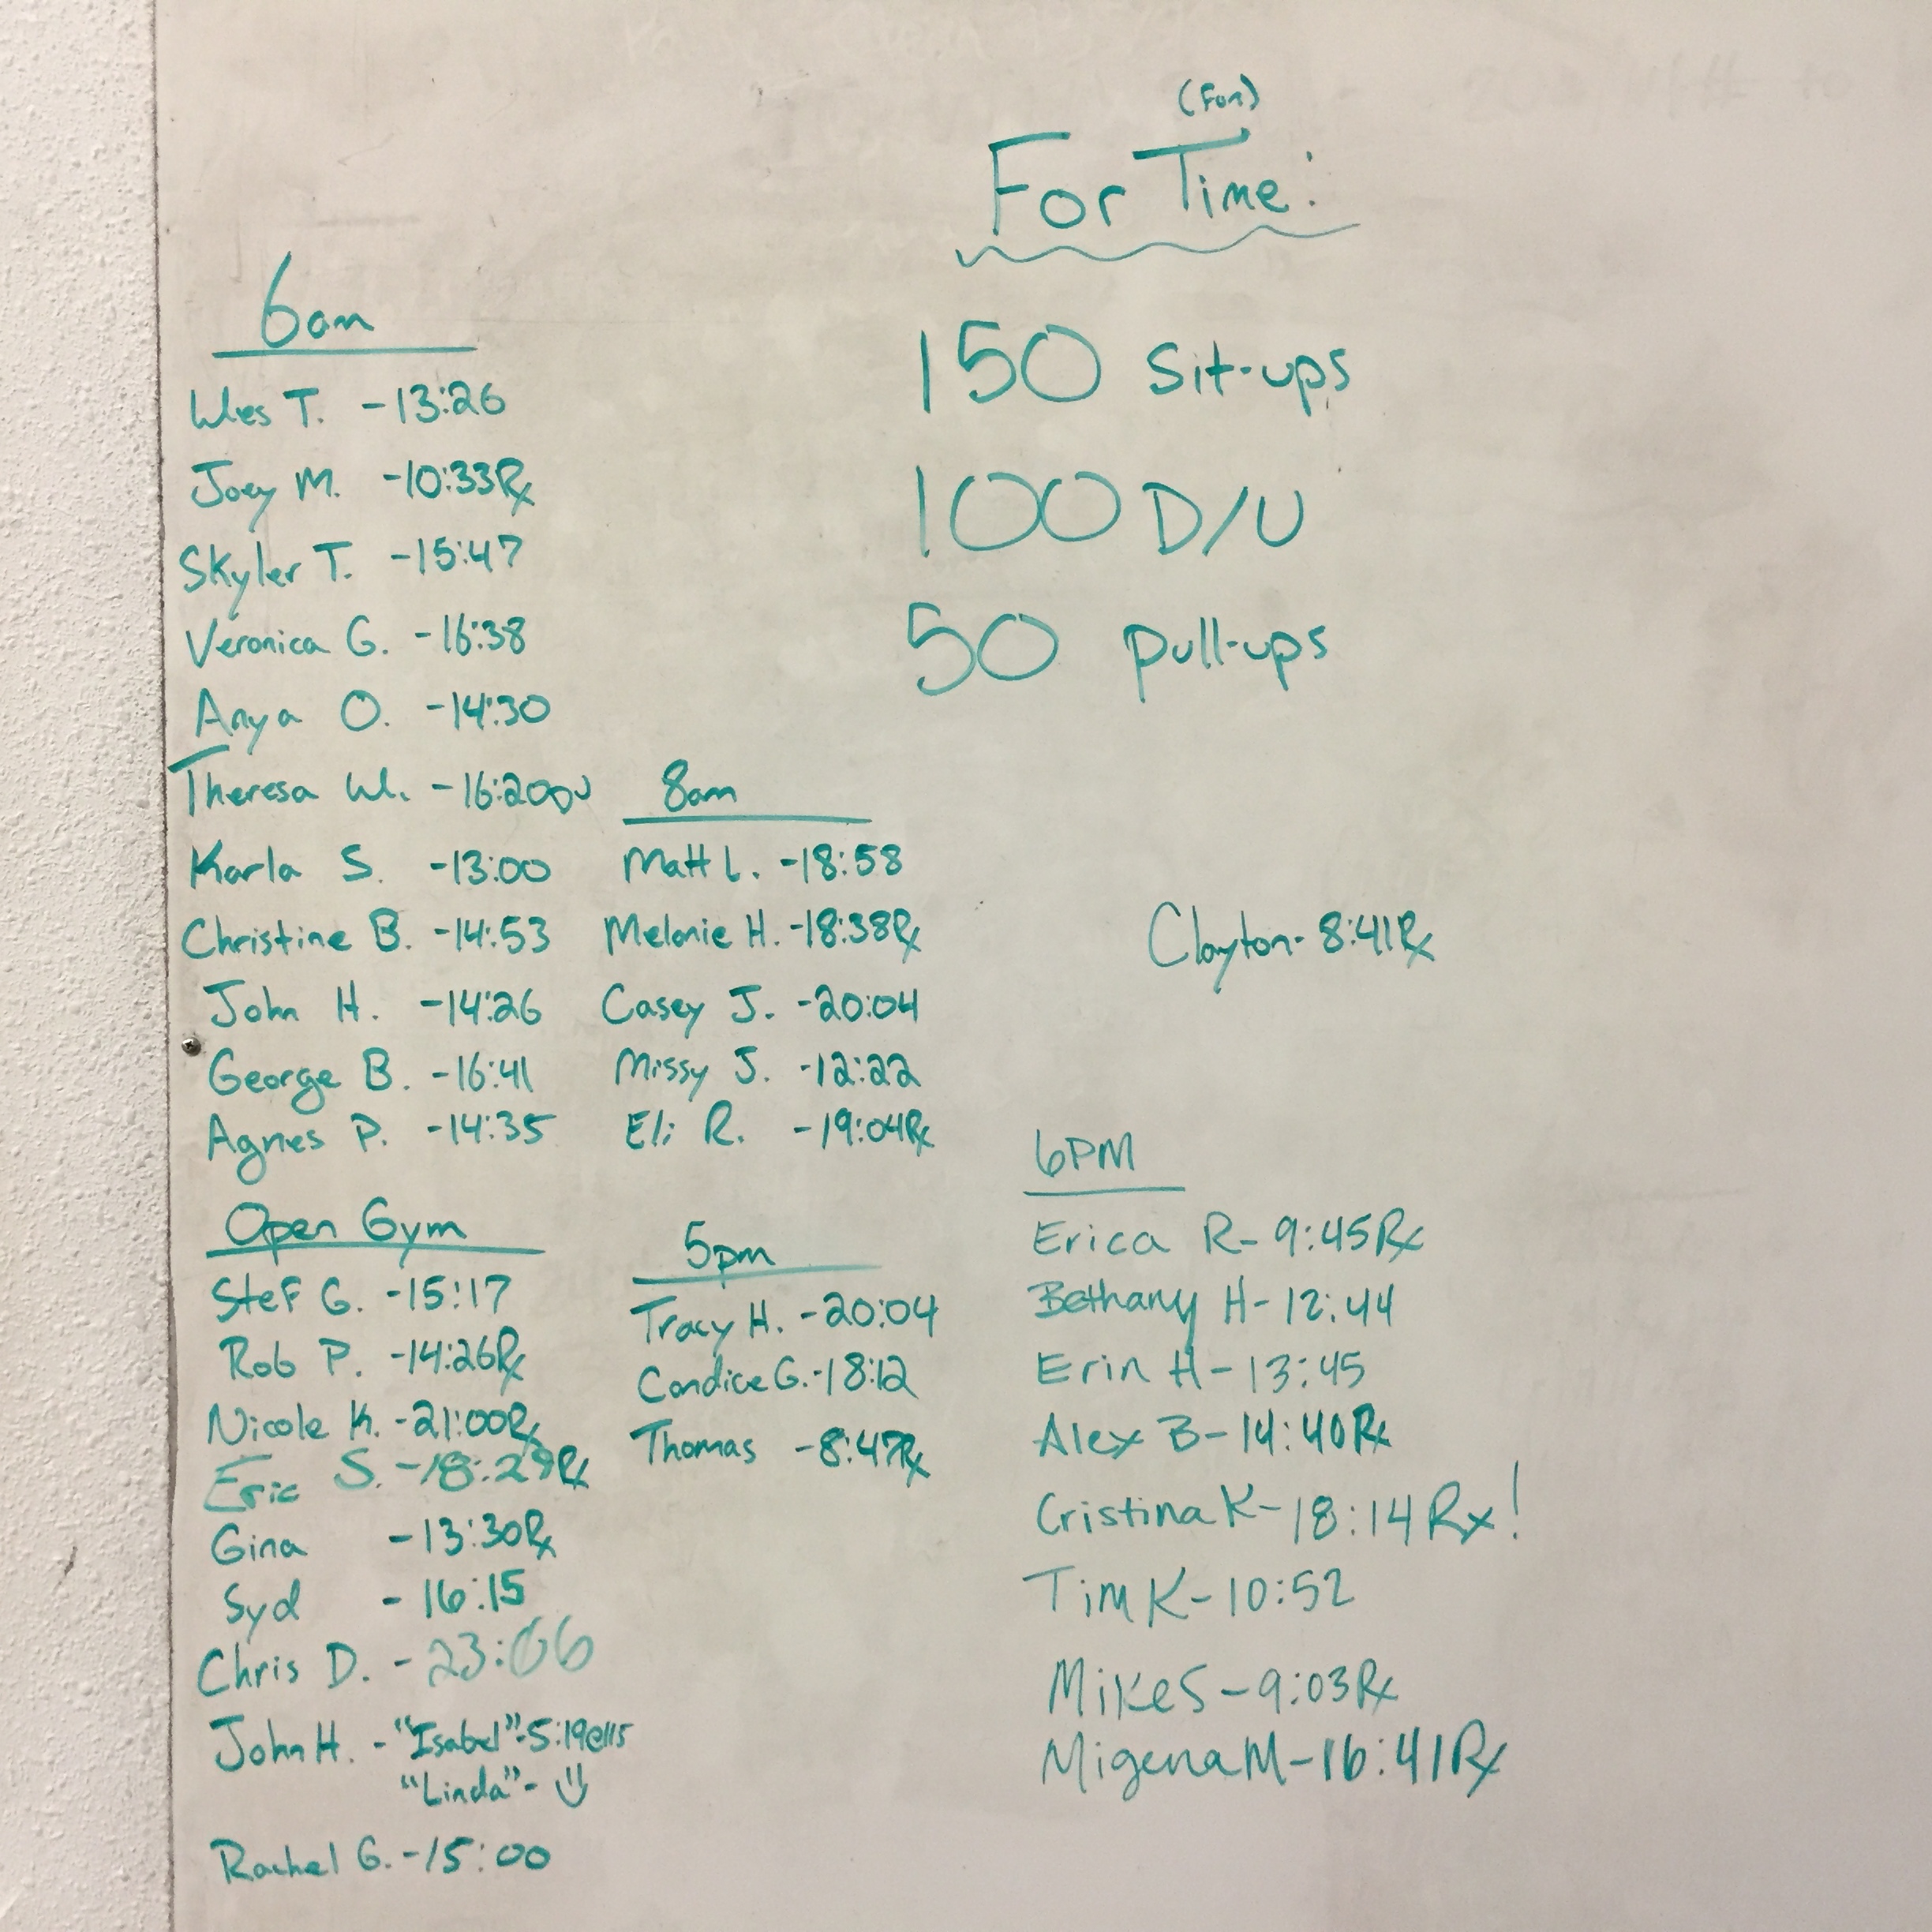 (Fun)
For Time:
150 Sit-ups
100 D/U
50 pull-ups
6am
Wes T. -13:26
Joey M. -10:33Rx
Skyler T. -15:47
Veronica G. -16:38
Anya O. -14:30
Theresa W. -16:20DU
Karla S. -13:00
Christine B. -14:53
John H. -14:26
George B. -16:41
Agnes P. -14:35
8am
Matt L. -18:58
Melanie H. -18:38Rx
Casey J. -20:04
Missy J. -12:22
Eli R. -19:04Rx
Clayton- 8:41Rx
Open Gym
Stef G. -15:17
Rob P. -14:26Rx
Nicole K. -21:00Rx
Eric S. -18:29Rx
Gina -13:30Rx
Syd - 16:15
Chris D. - 23:06
John H. - "Isabel"-5:19@115
"Linda"-
Rachel G. -15:00
5pm
Tracy H. -20:04
Candice G. -18:12
Thomas -8:47Rx
6PM
Erica R- 9:45Rx
Bethany H- 12:44
Erin H- 13:45
Alex B- 14:40Rx
Cristina K- 18:14Rx!
Tim K- 10:52
Mike S- 9:03Rx
Migena M- 16:41Rx